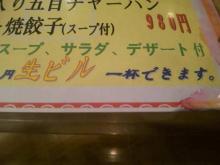 入り五目チャーハン
焼餃子(スープ付) 980円
スープ、サラダ、デザート付
円 生ビル 一杯できます。